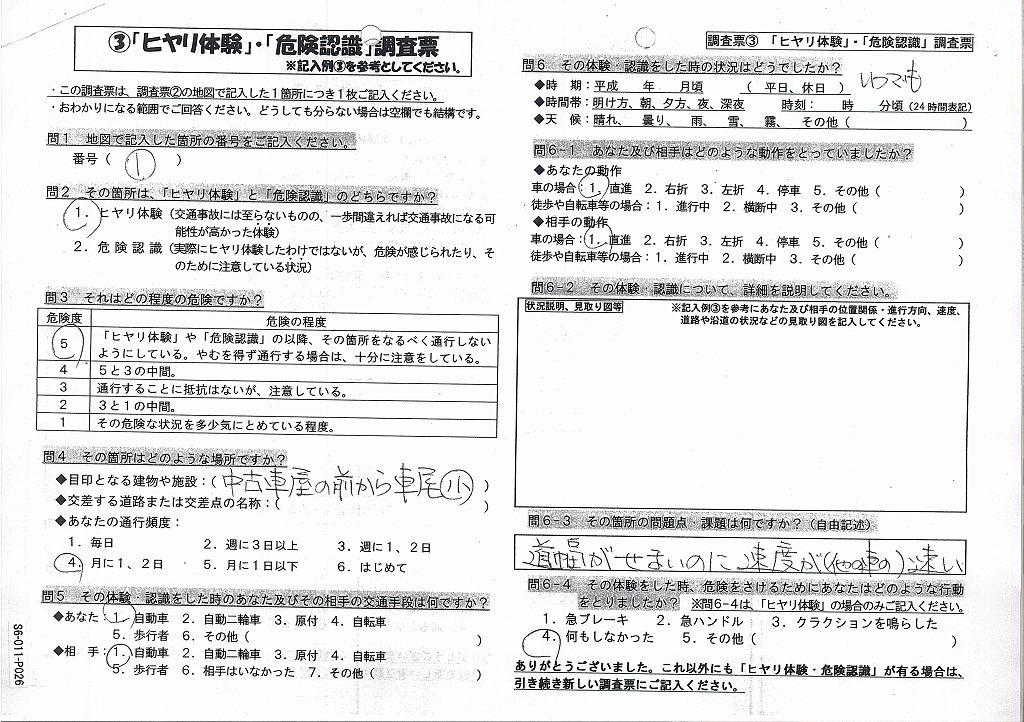 ③「ヒヤリ体験」・「危険認識」調査票
※記入例③を参考としてください。
・この調査票は、調査票②の地図で記入した１箇所につき１枚ご記入ください。
・おわかりになる範囲でご回答ください。どうしても分らない場合は空欄でも結構です。
問１　地図で記入した箇所の番号をご記入ください。
番号（　①　）
問２　その箇所は、「ヒヤリ体験」と「危険認識」のどちらですか？
１．ヒヤリ体験（交通事故には至らないものの、一歩間違えれば交通事故になる可
能性が高かった体験）
２．危険認識（実際にヒヤリ体験したわけではないが、危険が感じられたり、そ
のために注意している状況）
問３　それはどの程度の危険ですか？
危険度　危険の程度
５　「ヒヤリ体験」や「危険認識」の以降、その箇所をなるべく通行しない
ようにしている。やむを得ず通行する場合は、十分に注意をしている。
４　５と３の中間。
３　通行することに抵抗はないが、注意している。
２　３と１の中間。
１　その危険な状況を多少気にとめている程度。
問４　その箇所はどのような場所ですか？
◆目印となる建物や施設：（中古車屋の前から車尾㋛）
◆交差する道路または交差点の名称：（　）
◆あなたの通行頻度：
１．毎日　２．週に３日以上　３．週に１、２日
４．月に１、２日　５．月に１日以下　６．はじめて
問５　その体験・認識をした時のあなた及びその相手の交通手段は何ですか？
◆あなた：１．自動車　２．自動二輪車　３．原付　４．自転車
５．歩行者　６．その他（　）
◆相　手：１．自動車　２．自動二輪車　３．原付　４．自転車
５．歩行者　６．相手はいなかった　７．その他（　）
S6-011-P026
調査票③　「ヒヤリ体験」・「危険認識」調査票
問６　その体験・認識をした時の状況はどうでしたか？
いつでも
◆時　期：平成　年　月頃　（　平日、休日　）
◆時間帯：明け方、朝、夕方、夜、深夜　時刻：　時　分頃（24時間表記）
◆天　候：晴れ、　曇り、　雨、　雪、　霧、　その他（　）
問６-１　あなた及び相手はどのような動作をとっていましたか？
◆あなたの動作
車の場合：１．直進　２．右折　３．左折　４．停車　５．その他（　）
徒歩や自転車等の場合：１．進行中　２．横断中　３．その他（　）
◆相手の動作
車の場合：１．直進　２．右折　３．左折　４．停車　５．その他（　）
徒歩や自転車等の場合：１．進行中　２．横断中　３．その他（　）
問６-２　その体験・認識について、詳細を説明してください。
状況説明、見取り図等　※記入例③を参考にあなた及び相手の位置関係・進行方向、速度、
道路や沿道の状況などの見取り図を記入してください。
問６-３　その箇所の問題点・課題は何ですか？（自由記述）
道幅がせまいのに速度が（他の車の）速い
問６-４　その体験をした時、危険をさけるためにあなたはどのような行動
をとりましたか？　※問６-４は、「ヒヤリ体験」の場合のみご記入ください。
１．急ブレーキ　２．急ハンドル　３．クラクションを鳴らした
４．何もしなかった　５．その他（　）
ありがとうございました。これ以外にも「ヒヤリ体験・危険認識」が有る場合は、
引き続き新しい調査票にご記入ください。